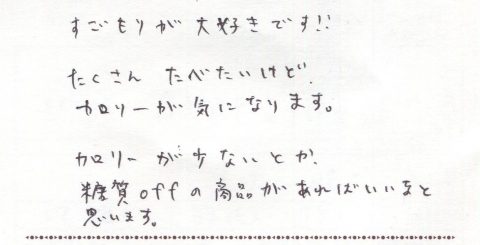 すごもりが大好きです!!
たくさん たべたいけど、
カロリーが気になります。
カロリーが少ないとか、
糖質offの商品があればいいなと
思います。